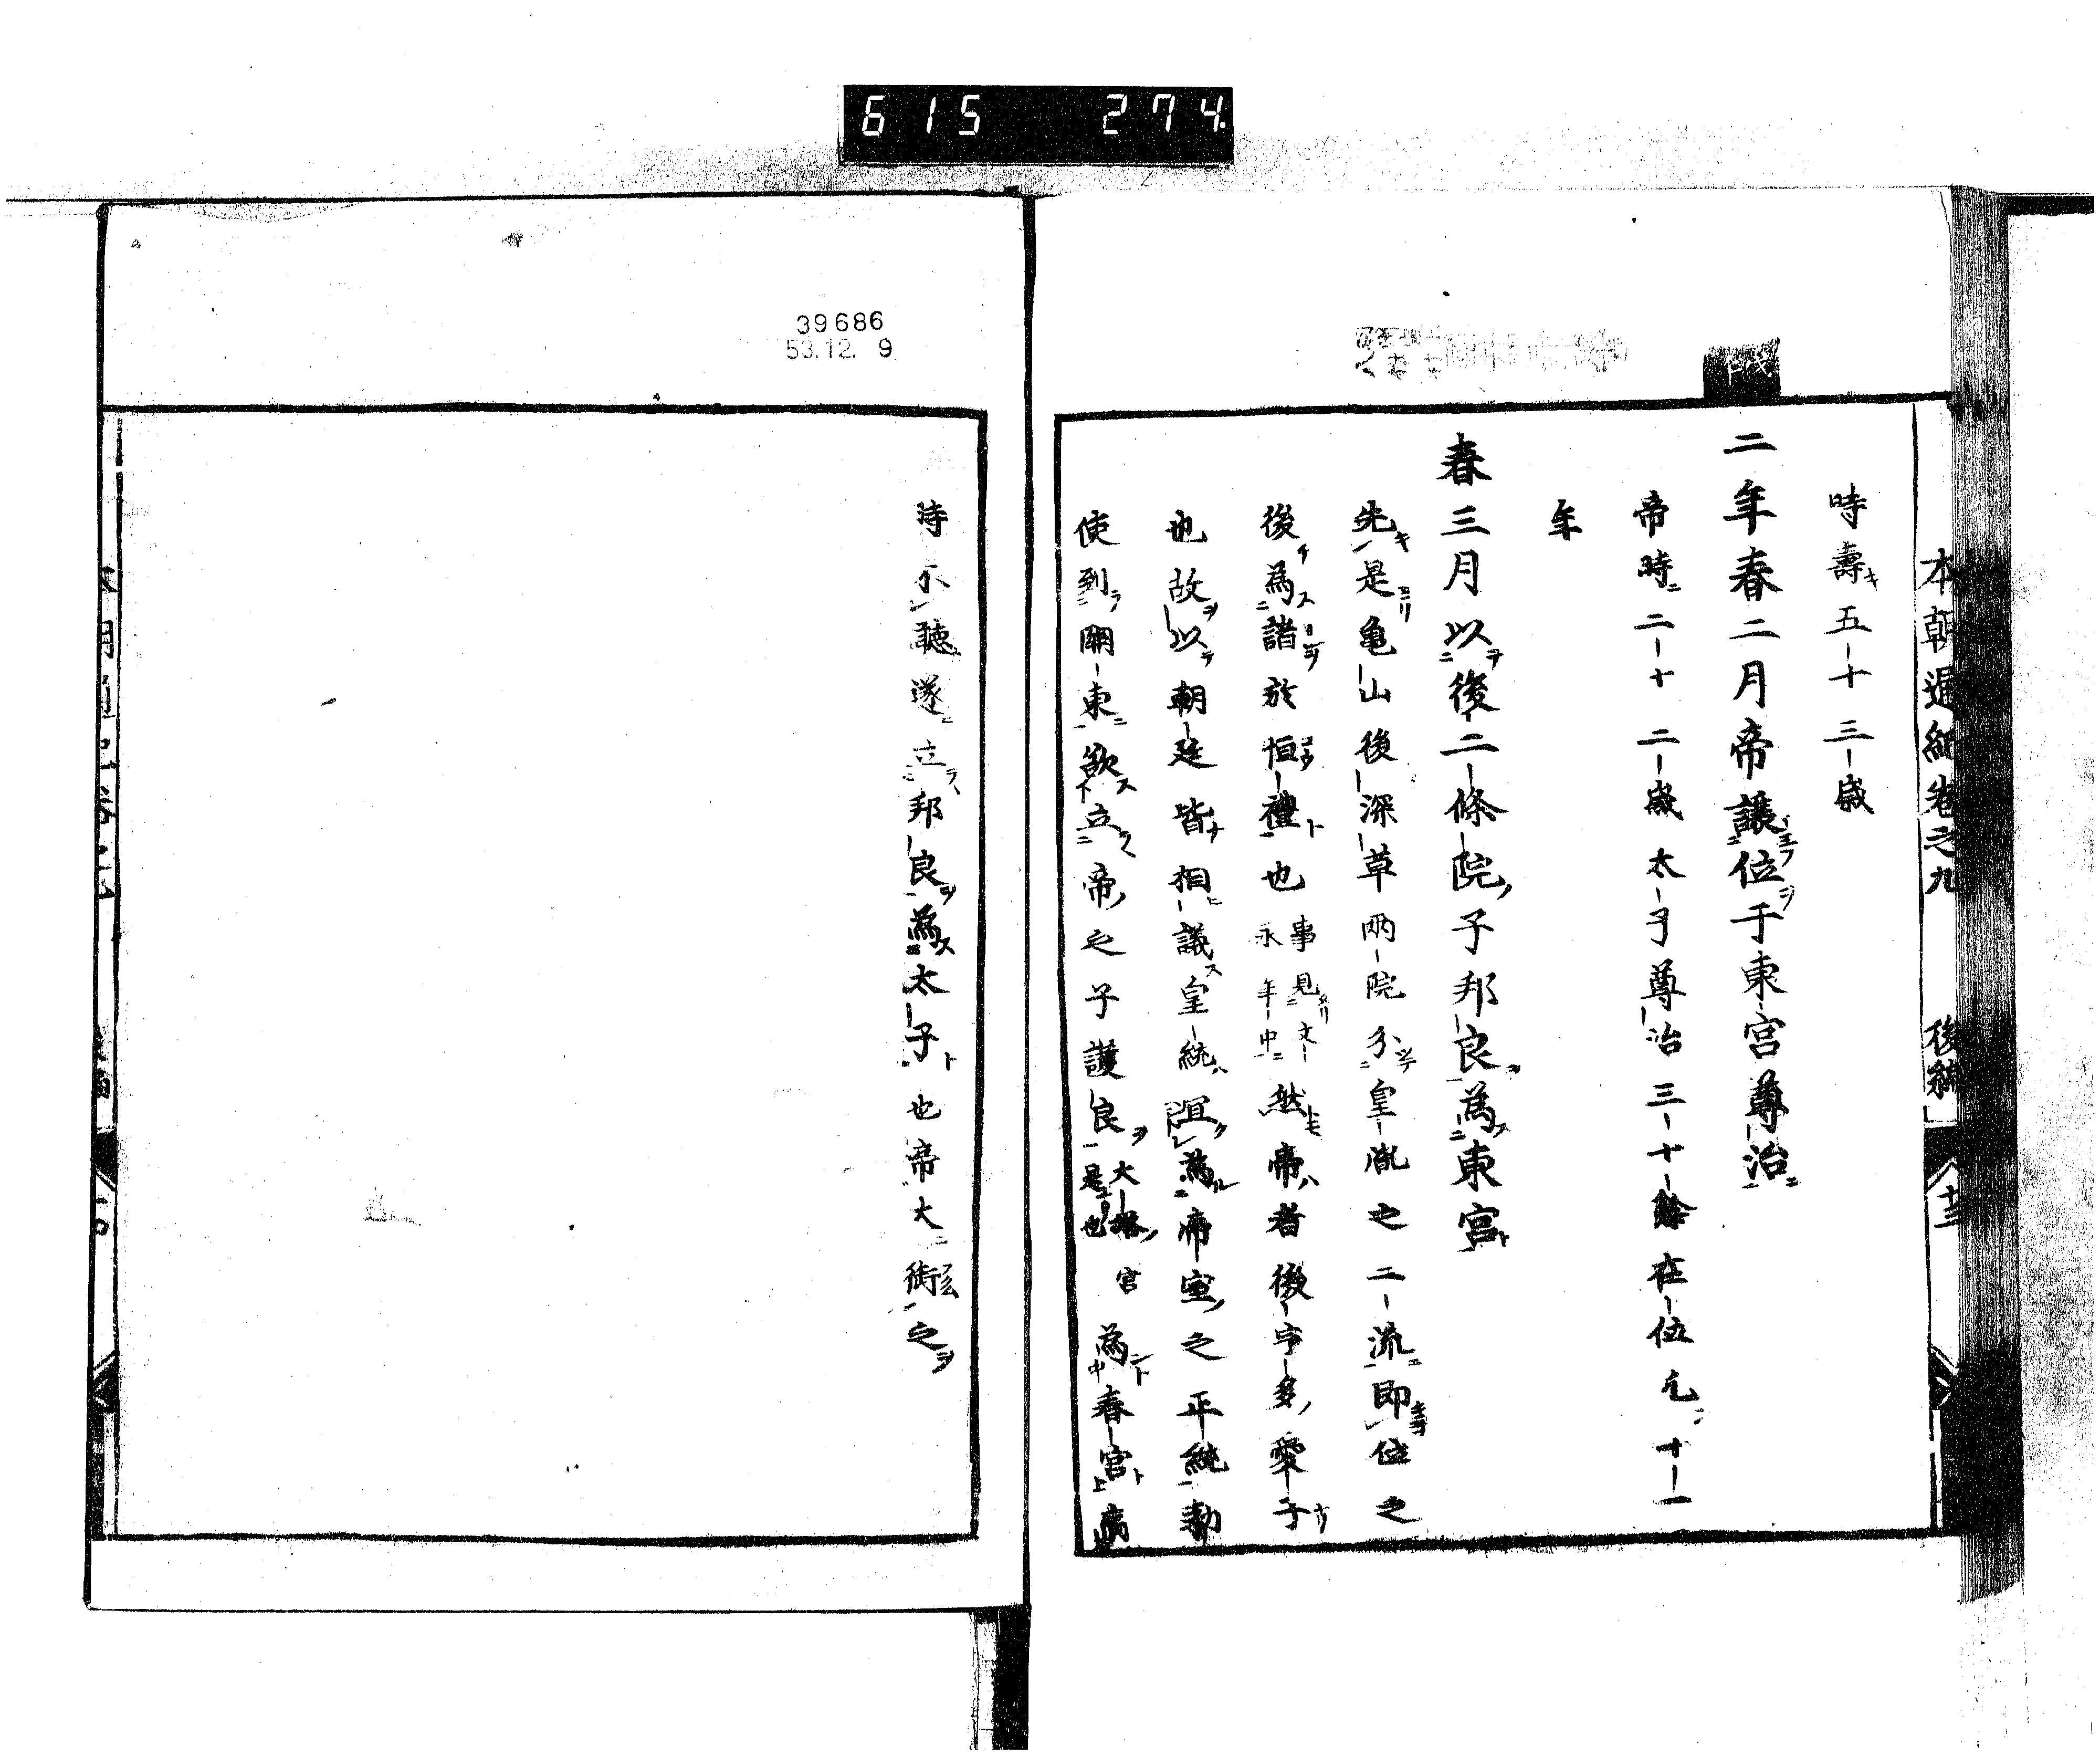 615 274.
本朝通紀卷之九 後編 十三
時壽五十三歳
戊
二年春二月帝讓位于東宮尊治
帝時二十二歳太子尊治三十餘在位凡十一
年
春三月以後二條院子邦良為東宮
先是亀山後深草兩院分皇胤之二流即位之
後為諸於恒禮也事見文永年中然帝者後宇多愛子
也故以朝廷皆相議皇統宜為帝室之平統勅
使到關東欲立帝之子護良大塔宮是也為春宮高
39686
53.12. 9
時不聽遂立邦良為太子也帝大銜之